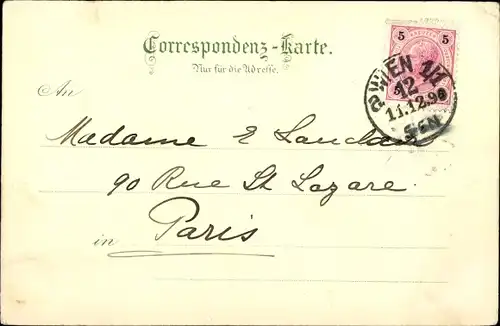 Correspondenz-Karte.
Nur für die Adresse.
5 5
WIEN 1/1
12
11.12.96
An
Madame E Landau
90 Rue St Lazare
in Paris